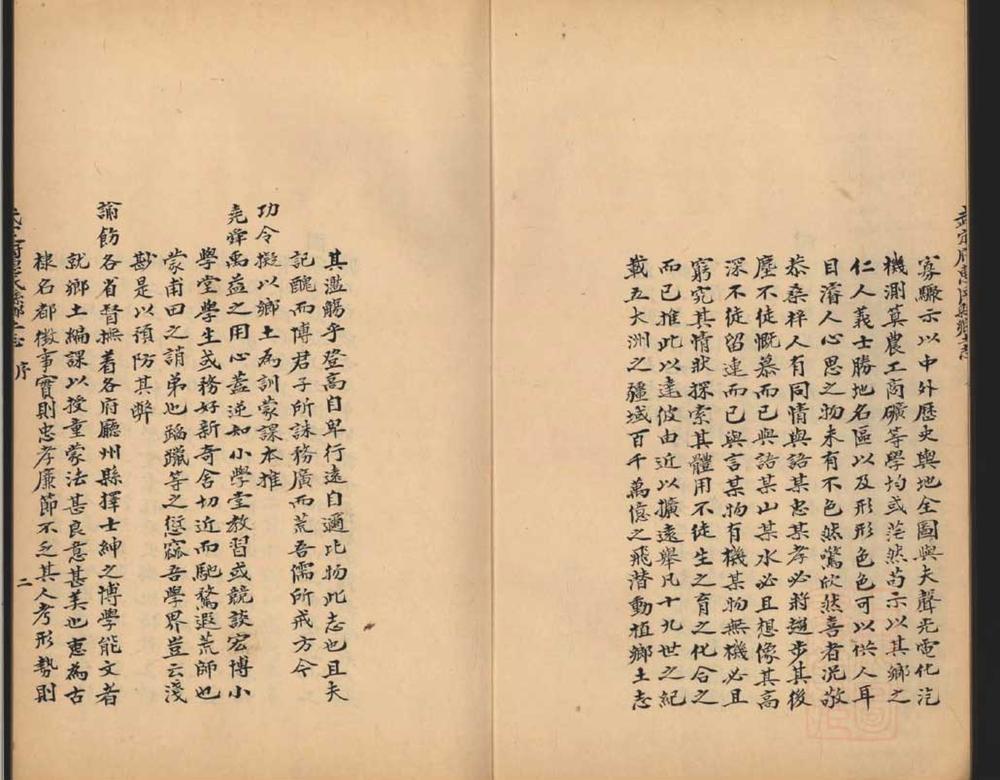 武定府惠民縣鄉土志
寡驟示以中外歷史輿地全圖與夫聲光電化汽
機測算農工商礦等學均或茫然茍示以其鄉之
仁人義士勝地名區以及形形色色可以供人耳
目濬人心思之物未有不色然驚欣然喜者況敬
恭桑梓人有同情與語某忠某孝必將趨步其後
塵不徒慨慕而已與語某山某水必且想像其高
深不徒留連而已與言某物有機某物無機必且
窮究其情狀探索其體用不徒生之育之化合之
而已推此以達彼由近以擴遠舉凡十九世之紀
載五大洲之疆域百千萬億之飛潛動植鄉土志
其濫觴乎登高自卑行遠自邇比物此志也且夫
記醜而博君子所誅務廣而荒吾儒所戒方今
功令擬以鄉土為訓蒙課本推
堯舜禹益之用心蓋逆知小學堂教習或競談宏博小
學堂學生或務好新奇舍切近而馳騖遐荒師也
蒙甫田之誚弟也蹈躐等之愆窳吾學界豈云淺
尠是以預防其弊
諭飭各省督撫著各府廳州縣擇士紳之博學能文者
就鄉土編課以授童蒙法甚良意甚美也惠為古
棣名都徵事實則忠孝廉節不乏其人考形勢則
武定府惠民縣鄉土志 序 二